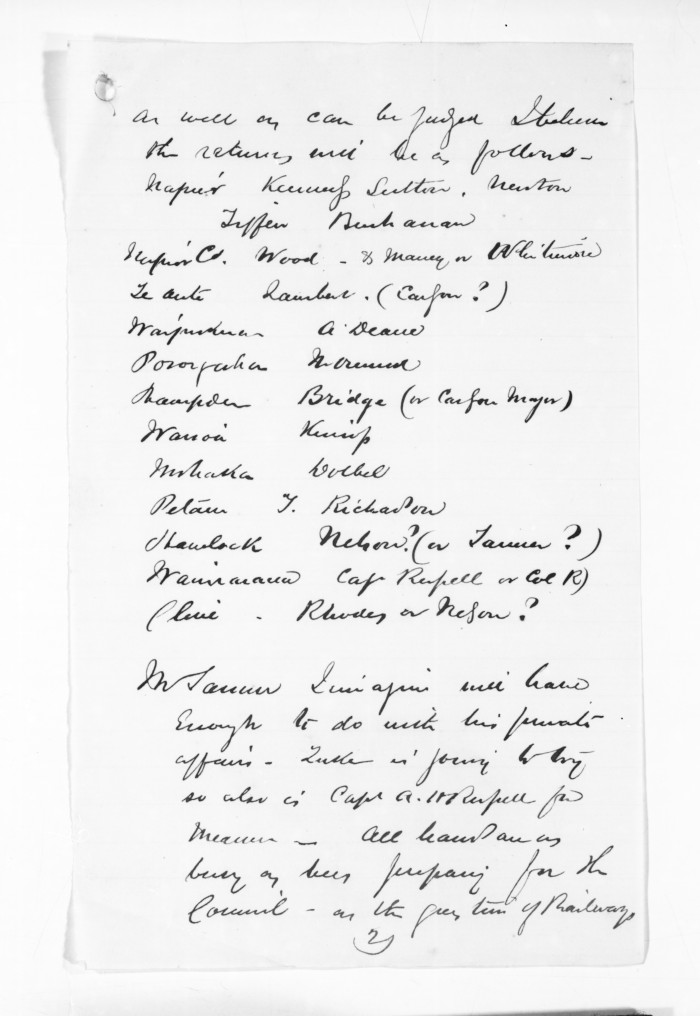 as well as can be judged I believe
the returns will be as follows -
Napier Kennedy Sutton, Newton
Tiffen Buchanan
Napier Cd. Wood - Maney or Whitmore
Te aute Lambert. (Carlyon?)
Waipukurau A Deane
Porongahau Normand
Hampden Bridge (or Carlyon Major)
Wairoa Kinross
Mohaka Dolbel
Petane T. Richardson
Havelock Nelson? (or Tanner?)
Waimarama Capt Russell or Col R)
Clive - Rhodes or Nelson?
Mr Tanner I imagine will have
Enough to do with his private
affairs - is going to try
so also is Capt A. H Russell for
Meanee - All hands are as
busy as bees preparing for the
Council - as the question of Railways
(2)